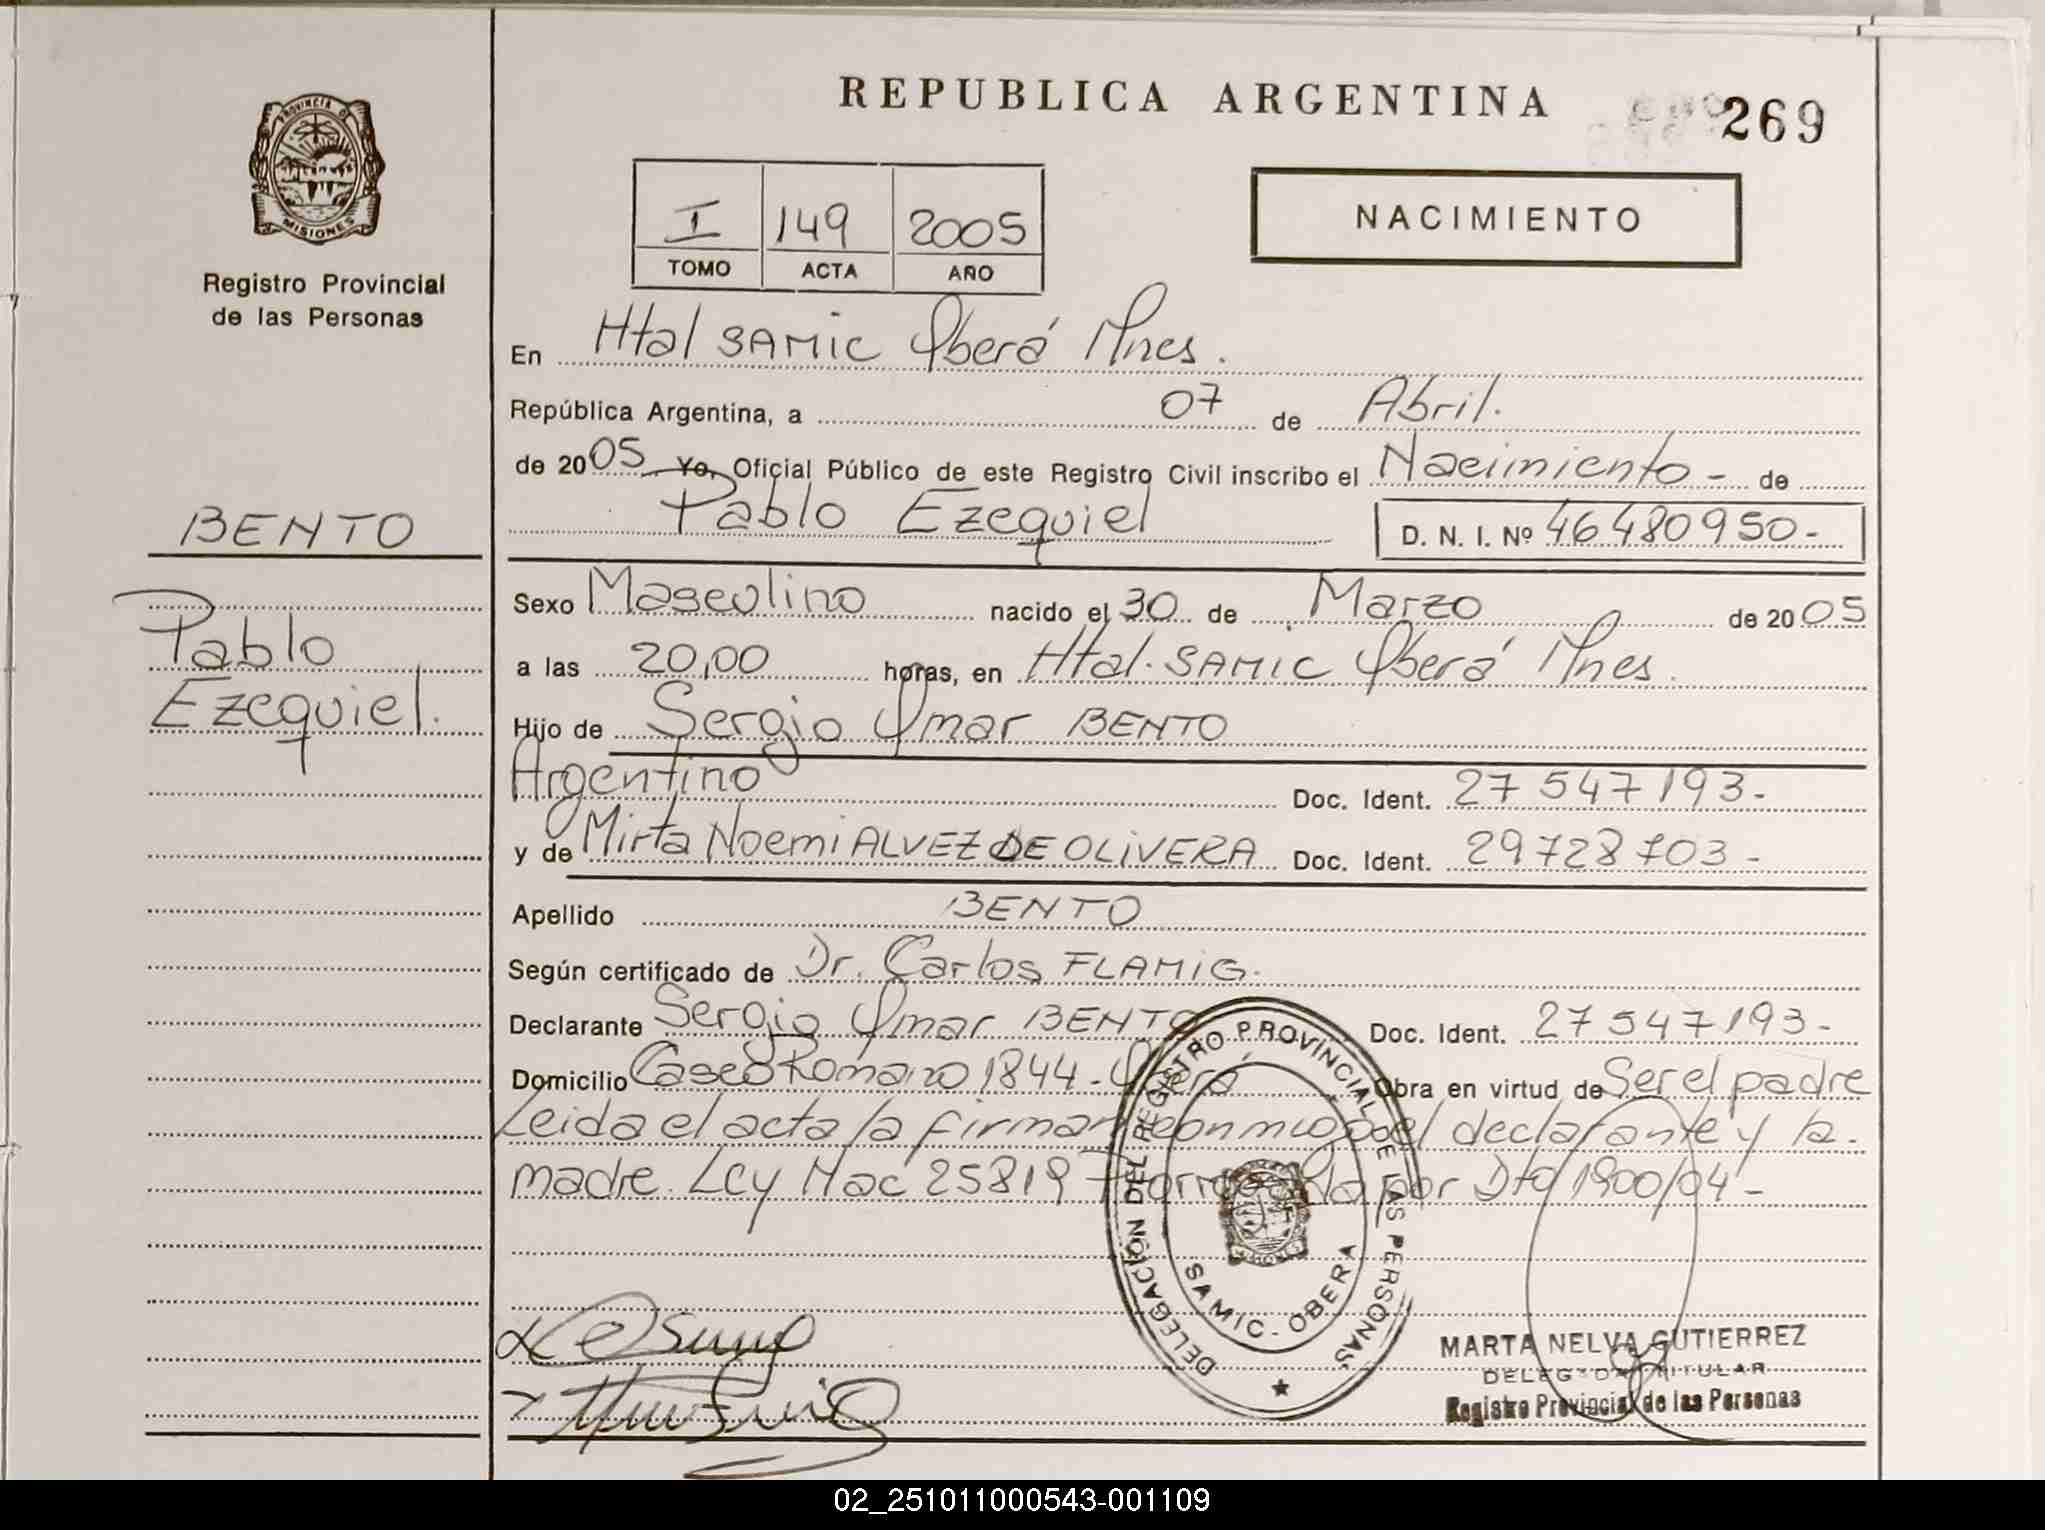 REPUBLICA ARGENTINA
269
PROVINCIA DE
MISIONES
Registro Provincial
de las Personas
I 149 2005
TOMO ACTA AÑO
NACIMIENTO
En Htal SAMIC Oberá Mnes.
República Argentina, a 07 de Abril.
de 2005 Yo, Oficial Público de este Registro Civil inscribo el Nacimiento - de
Pablo Ezequiel D. N. I. Nº 46480950-
BENTO
Pablo
Ezequiel.
Sexo Masculino nacido el 30 de Marzo de 2005
a las 20,00 horas, en Htal. SAMIC Oberá Mnes.
Hijo de Sergio Omar BENTO
Argentino Doc. Ident. 27547193-
y de Mirta Noemi ALVEZ DE OLIVERA Doc. Ident. 29728703-
Apellido BENTO
Según certificado de Dr. Carlos FLAMIG.
Declarante Sergio Omar BENTO Doc. Ident. 27547193-
Domicilio Caseo Romano 1844 - Oberá Obra en virtud de Ser el padre
Leida el acta la firman conmigo el declarante y la
madre. Ley Nac 25819 Prorrogada por Dto 1900/04-
DELEGACIÓN DEL REGISTRO PROVINCIAL DE LAS PERSONAS
SAMIC - OBERA
MARTA NELVA GUTIERREZ
DELEGADA TITULAR
Registro Provincial de las Personas
02_251011000543-001109